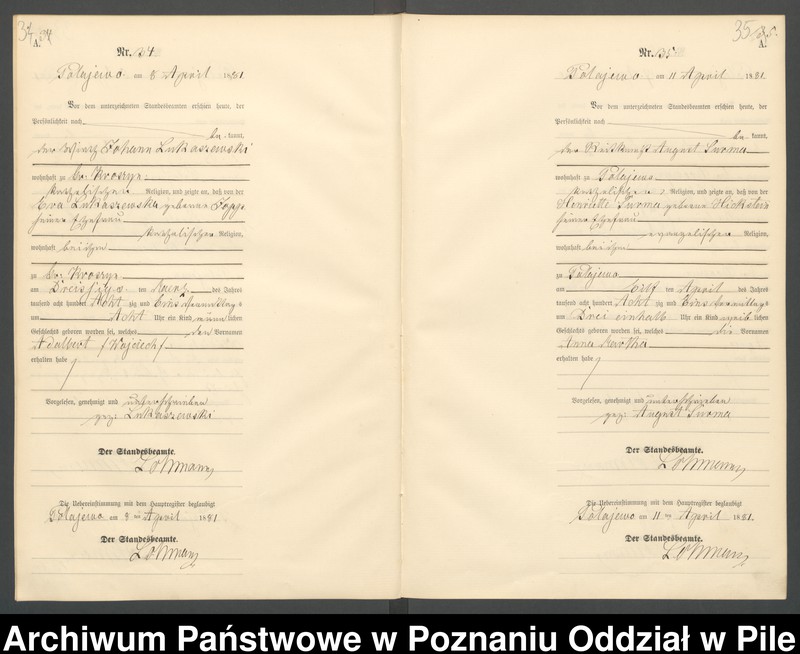 34
A.
Nr. 34
Polajewo am 8 April 1881
Vor dem unterzeichneten Standesbeamten erschien heute, der
Persönlichkeit nach
be kannt,
der Wirth Johann Lukaszewski
wohnhaft zu Gr. Kroszyn
katholischer Religion, und zeigte an, daß von der
Eva Lukaszewska geborene
seiner Ehefrau
katholischer Religion,
wohnhaft bei ihm
zu Gr. Kroszyn
am ten Maerz des Jahres
tausend acht hundert Acht zig und Eins
um Acht Uhr ein Kind männ lichen
Geschlechts geboren worden sei, welches den Vornamen
Adalbert /Wojciech/
erhalten habe
Vorgelesen, genehmigt und unterschrieben
gez. Lukaszewski
Der Standesbeamte.
Lohmann
Die Uebereinstimmung mit dem Hauptregister beglaubigt
Polajewo am 8 ten April 1881
Der Standesbeamte.
Lohmann
35
A.
Nr. 35
Polajewo am 11 April 1881.
Vor dem unterzeichneten Standesbeamten erschien heute, der
Persönlichkeit nach
be kannt,
der August Surma
wohnhaft zu Polajewo
katholischer Religion, und zeigte an, daß von der
Henriette Surma geborene
seiner Ehefrau
evangelischer Religion,
wohnhaft bei ihm
zu Polajewo
am Elf ten April des Jahres
tausend acht hundert Acht zig und Eins Vormittags
um Drei einhalb Uhr ein Kind weib lichen
Geschlechts geboren worden sei, welches die Vornamen
Anna Martha
erhalten habe
Vorgelesen, genehmigt und unterschrieben
gez. August Surma
Der Standesbeamte.
Lohmann
Die Uebereinstimmung mit dem Hauptregister beglaubigt
Polajewo am 11 ten April 1881.
Der Standesbeamte.
Lohmann
Archiwum Państwowe w Poznaniu Oddział w Pile